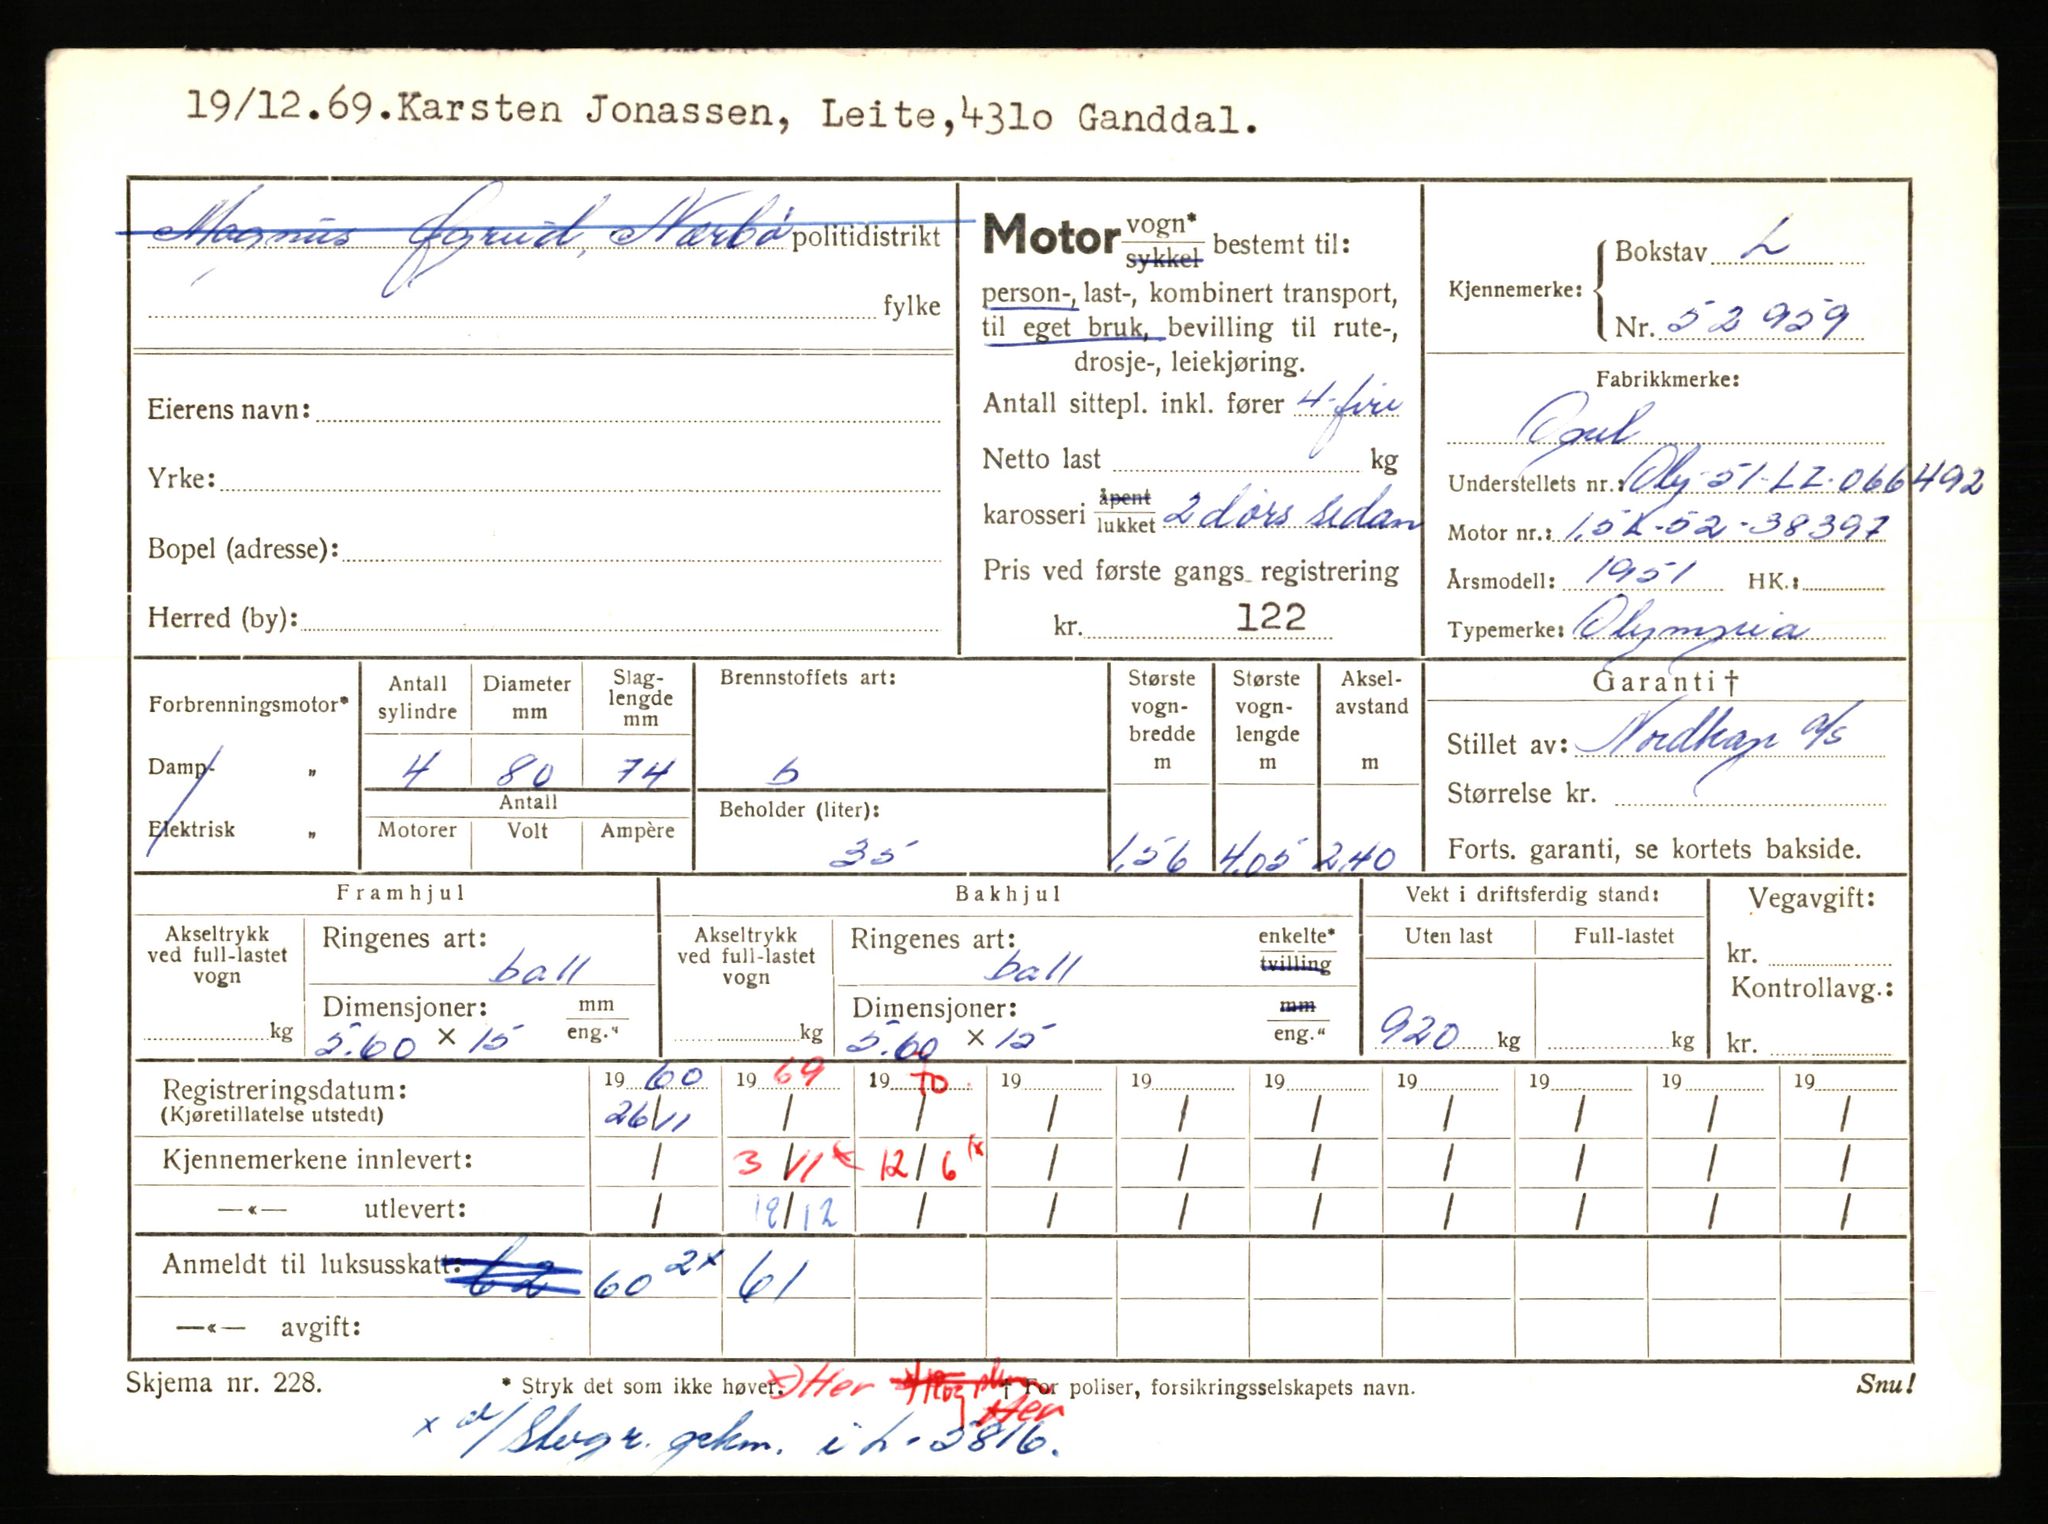 19/12.69.Karsten Jonassen, Leite,431o Ganddal.
Magnus Njærheim, Nærbø politidistrikt
fylke
Eierens navn:
Yrke:
Bopel (adresse):
Herred (by):
Motor vogn* sykkel bestemt til:
person-, last-, kombinert transport,
til eget bruk, bevilling til rute-,
drosje-, leiekjøring.
Antall sittepl. inkl. fører 4-fire
Netto last kg
karosseri åpent lukket 2 dørs sedan
Pris ved første gangs registrering
kr. 122
Kjennemerke: Bokstav L
Nr. 52959
Fabrikkmerke:
Opel
Understellets nr.: Oly-51-LZ-066492
Motor nr.: 1,5L-52-38397
Årsmodell: 1951 HK.:
Typemerke: Olympia
Forbrenningsmotor*
Damp- „
Elektrisk „
Antall sylindre Diameter mm Slag-lengde mm
4 80 74
Antall
Motorer Volt Ampère
Brennstoffets art:
b
Beholder (liter):
35
Største vogn-bredde m
1,56
Største vogn-lengde m
4,05
Aksel-avstand m
2,40
Garanti †
Stillet av: Nordkap a/s
Størrelse kr.
Forts. garanti, se kortets bakside.
Framhjul
Akseltrykk ved full-lastet vogn
kg
Ringenes art:
ball
Dimensjoner: mm eng."
5.60 x 15
Bakhjul
Akseltrykk ved full-lastet vogn
kg
Ringenes art: enkelte* tvilling
ball
Dimensjoner: mm eng."
5.60 x 15
Vekt i driftsferdig stand:
Uten last Full-lastet
920 kg kg
Vegavgift:
kr.
Kontrollavg.:
kr.
Registreringsdatum: 19 60 19 69 19 70 19 19 19 19 19 19 19
(Kjøretillatelse utstedt) 26/11 / / / / / / / / /
Kjennemerkene innlevert: / 3/11 x 12/6 x / / / / / / /
—«— utlevert: / 19/12 / / / / / / / /
Anmeldt til luksusskatt: 62 60 2x 61
—«— avgift:
Skjema nr. 228. * Stryk det som ikke høver. x) Her † For poliser, forsikringsselskapets navn. Snu!
Her
x i L-5816.